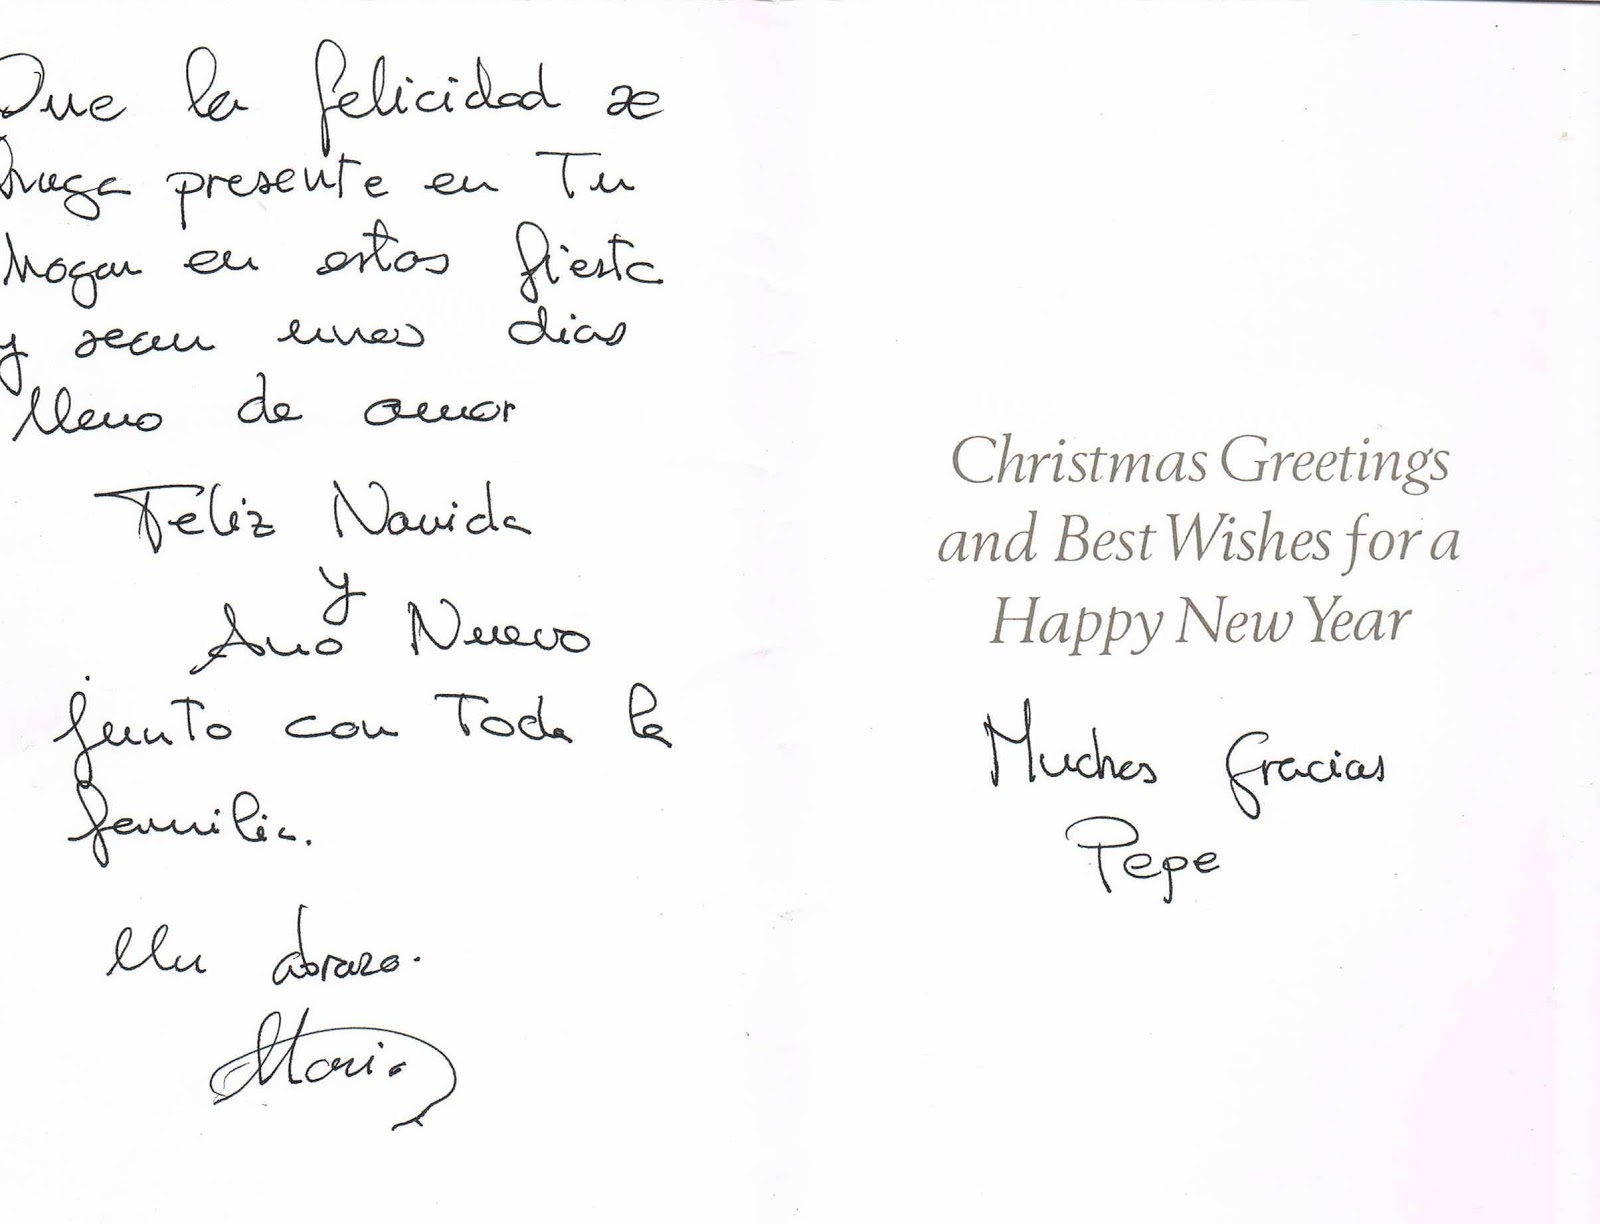 Que la felicidad se
haga presente en Tu
hogar en estas fiesta
y sean unos dias
lleno de amor
Feliz Navida
y
Ano Nuevo
junto con Toda la
familia.
Un abrazo.
Maria
Christmas Greetings
and Best Wishes for a
Happy New Year
Muchas gracias
Pepe